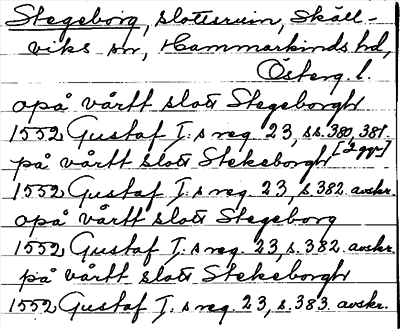 Stegeborg, slottsruin, Skäll-
viks sn, Hammarkinds hd,
Österg. l.
opå vårtt slott Stegeborgh
1552 Gustaf I:s reg. 23, ss. 380, 381.
på vårtt slott Stekeborgh [2 ggr]
1552 Gustaf I:s reg. 23, s. 382. avskr.
opå vårtt slott Stegeborg
1552 Gustaf I:s reg. 23, s. 382. avskr.
på vårtt slott Stekeborgh
1552 Gustaf I:s reg. 23, s. 383. avskr.